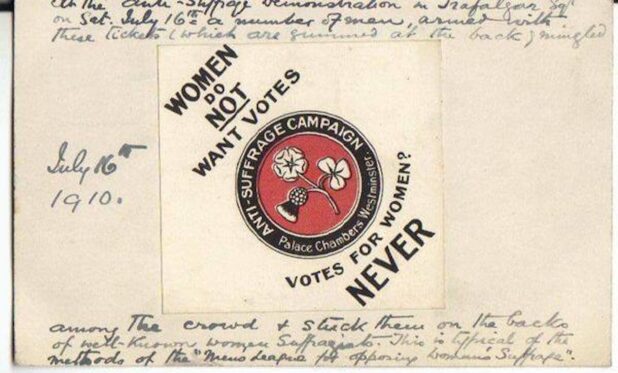 At the Anti-Suffrage Demonstration in Trafalgar Sqre
on Sat. July 16th a number of men, armed with
these tickets (which are gummed at the back) mingled
WOMEN
DO
NOT
WANT VOTES
ANTI-SUFFRAGE CAMPAIGN
Palace Chambers Westminster.
VOTES FOR WOMEN?
NEVER
July 16th
1910.
among the crowd & stuck them on the backs
of well-known women Suffragists. This is typical of the
methods of the "Mens League for opposing Womans Suffrage".